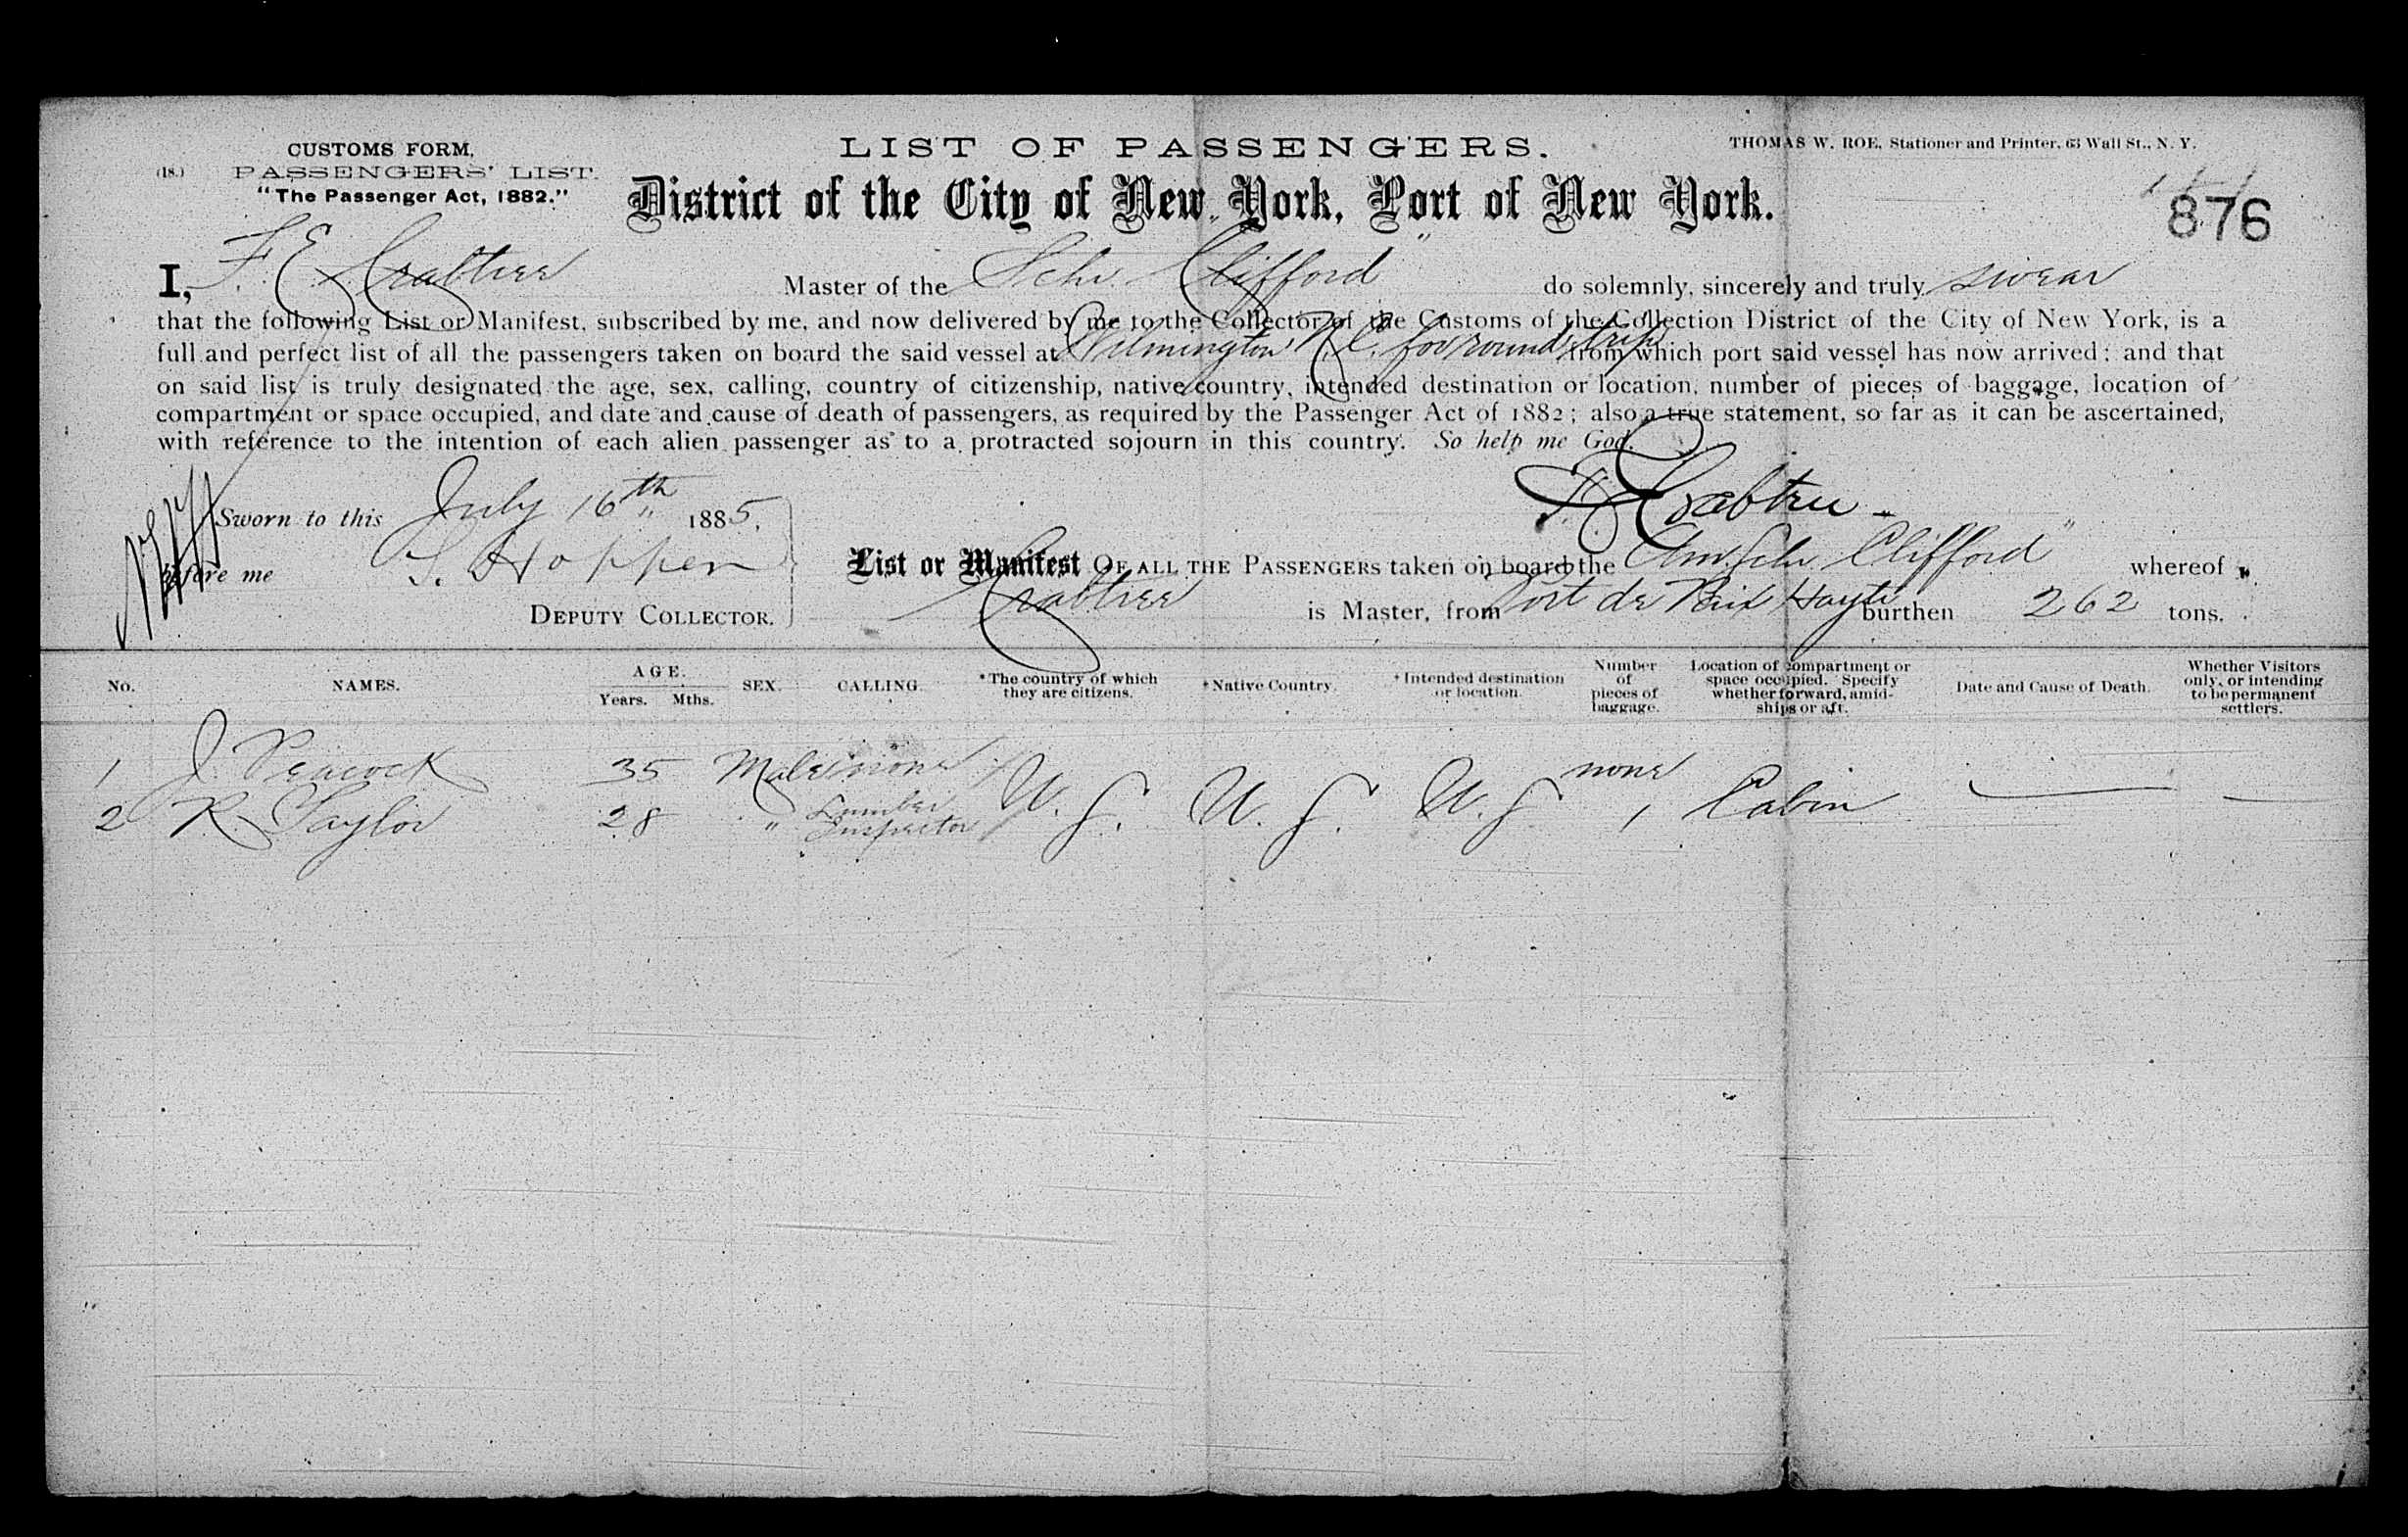 CUSTOMS FORM,
(18.) PASSENGERS' LIST.
"The Passenger Act, 1882."
LIST OF PASSENGERS.
THOMAS W. ROE, Stationer and Printer, 63 Wall St., N. Y.
District of the City of New York, Port of New York.
876
I, F. E. Crabtree Master of the Schr. "Clifford" do solemnly, sincerely and truly swear
that the following List or Manifest, subscribed by me, and now delivered by me to the Collector of the Customs of the Collection District of the City of New York, is a
full and perfect list of all the passengers taken on board the said vessel at Wilmington N.C. for round trip from which port said vessel has now arrived; and that
on said list is truly designated the age, sex, calling, country of citizenship, native country, intended destination or location, number of pieces of baggage, location of
compartment or space occupied, and date and cause of death of passengers, as required by the Passenger Act of 1882; also a true statement, so far as it can be ascertained,
with reference to the intention of each alien passenger as to a protracted sojourn in this country. So help me God.
F. E. Crabtree
Sworn to this July 16th 1885,
before me S. Hoppen
DEPUTY COLLECTOR.
List or Manifest OF ALL THE PASSENGERS taken on board the Am Schr. Clifford" whereof
Crabtree is Master, from Port de Paix Hayti burthen 262 tons.
No. NAMES. AGE. Years. Mths. SEX. CALLING. *The country of which they are citizens. *Native Country *Intended destination or location. Number of pieces of baggage. Location of compartment or space occupied. Specify whether forward, amidships or aft. Date and Cause of Death. Whether Visitors only, or intending to be permanent settlers.
1 J. Peacock 35 Male none U.S. U.S. U.S. none Cabin
2 R Taylor 28 " Lumber Inspector 1